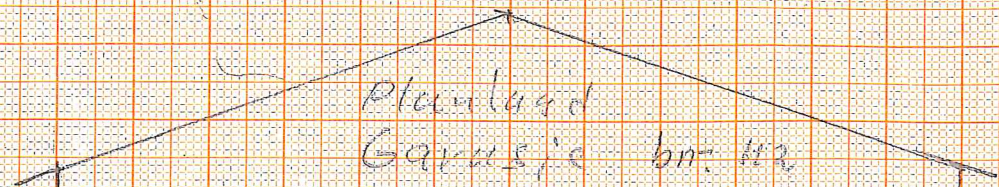 Planlagd
Garasje bnr 112